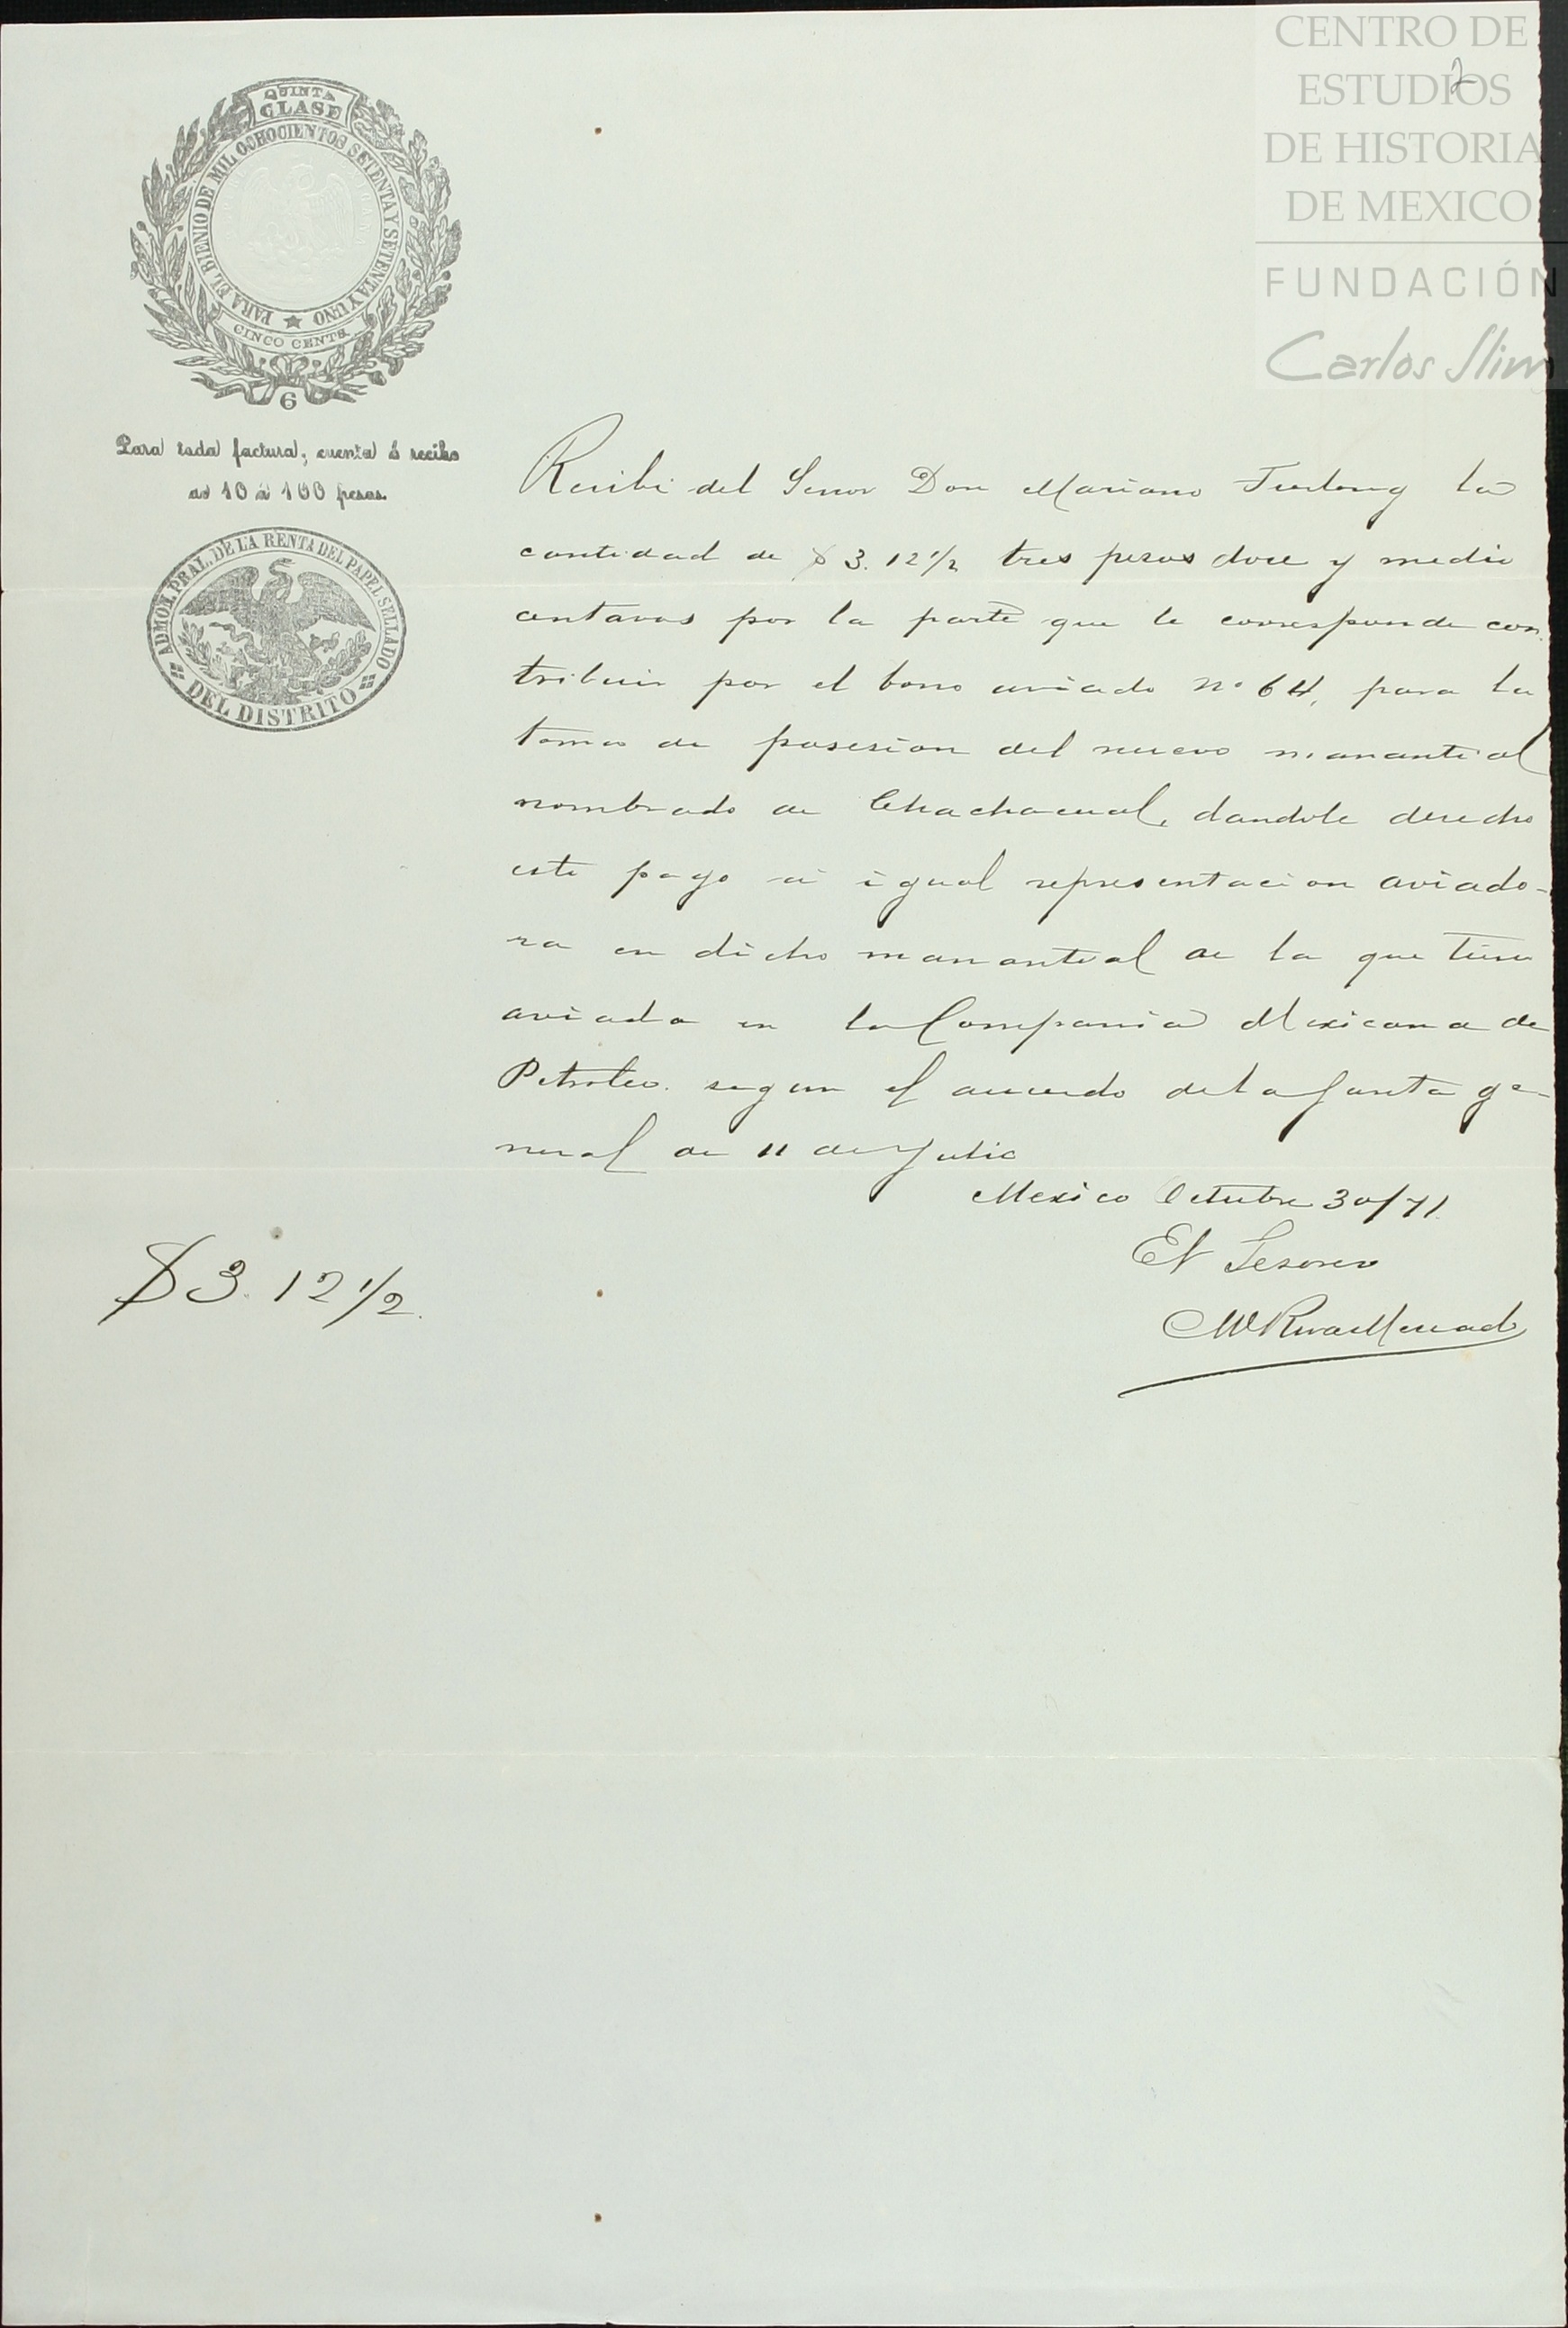 CENTRO DE
ESTUDIOS
DE HISTORIA
DE MEXICO
FUNDACIÓN
Carlos Slim
2
QUINTA
CLASE
PARA EL BIENIO DE MIL OCHOCIENTOS SETENTA Y SETENTA Y UNO
CINCO CENTS.
6
Para toda factura, cuenta ó recibo
de 10 á 100 pesos.
ADMON. PRAL. DE LA RENTA DEL PAPEL SELLADO
DEL DISTRITO
Recibi del Senor Don Mariano Furlong la
cantidad de $ 3. 12 1/2 tres pesos doce y medio
centavos por la parte que le corresponde con
tribuir por el bono aviado no 64, para la
toma de posesion del nuevo manantial
nombrado de Chachacual, dandole derecho
este pago á igual representacion aviado-
ra en dicho manantial de la que tiene
aviada en la Compania Mexicana de
Petroleo. segun el acuerdo de la Junta ge-
neral de 11 de Julio
Mexico Octubre 30/71.
El Tesorero
$ 3. 12 1/2.